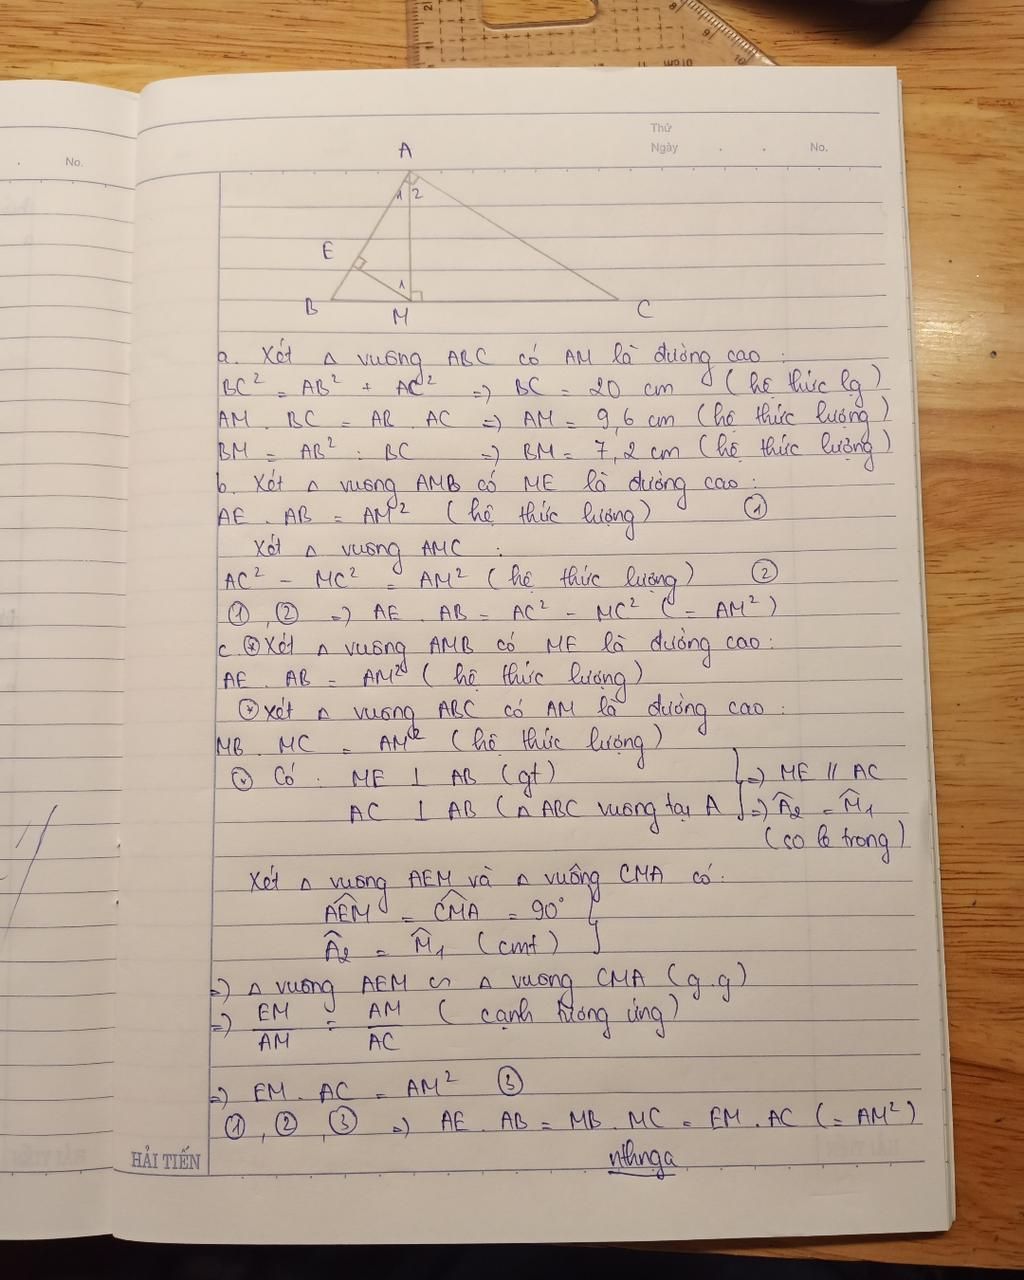 Thứ
Ngày . . No.
. No.
A
1 2
E
1
B
M
C
a. Xét △ vuông ABC có AM là đường cao :
BC² = AB² + AC² => BC = 20 cm (hệ thức lg)
AM . BC = AB . AC => AM = 9,6 cm (hệ thức lượng)
BM = AB² : BC => BM = 7,2 cm (hệ thức lượng)
b. Xét △ vuông AMB có ME là đường cao :
AE . AB = AM² (hệ thức lượng) ①
Xét △ vuông AMC :
AC² - MC² = AM² (hệ thức lượng) ②
①, ② => AE . AB = AC² - MC² (= AM²)
c. * Xét △ vuông AMB có ME là đường cao :
AE . AB = AM² (hệ thức lượng)
* Xét △ vuông ABC có AM là đường cao :
MB . MC = AM² (hệ thức lượng)
* Có : ME ⊥ AB (gt) => ME // AC
AC ⊥ AB (△ ABC vuông tại A => Â2 = M̂1
(so le trong)
Xét △ vuông AEM và △ vuông CMA có :
AEM = CMA = 90°
Â2 = M̂1 (cmt)
=> △ vuông AEM ∽ △ vuông CMA (g.g)
=> EM/AM = AM/AC (cạnh tương ứng)
=> EM . AC = AM² ③
①, ②, ③ => AE . AB = MB . MC = EM . AC (= AM²)
nthnga
HẢI TIẾN